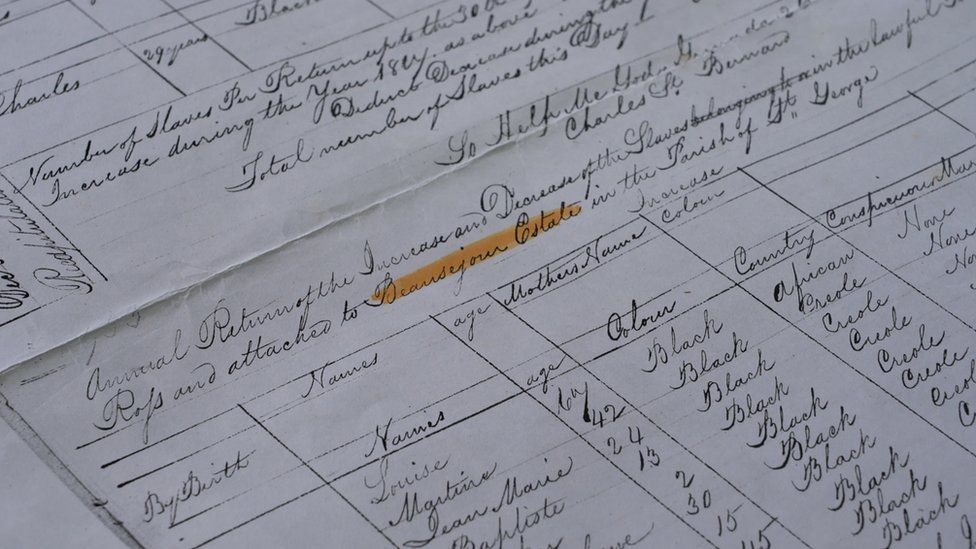 Black
Charles 29 years
Number of Slaves Per Return up to the 30th
Increase during the Year 1817 as above
Deduct Decrease during the
Total number of Slaves this Day
So Help Me God. Grenada
Charles St. Bernard
Annual Return of the Increase and Decrease of the Slaves belonging to or in the lawful
Ross and attached to Beausejour Estate in the Parish of St. George
Increase
Names age Mothers Name Colour
By Birth
Names age Colour Country Conspicuous
Louise 42 Black African None
Martine 24 Black Creole None
Jean Marie 13 Black Creole
Baptiste 2 Black Creole
30 Black Creole
15 Black Creole
45 Black Creole
Black
Black
Black